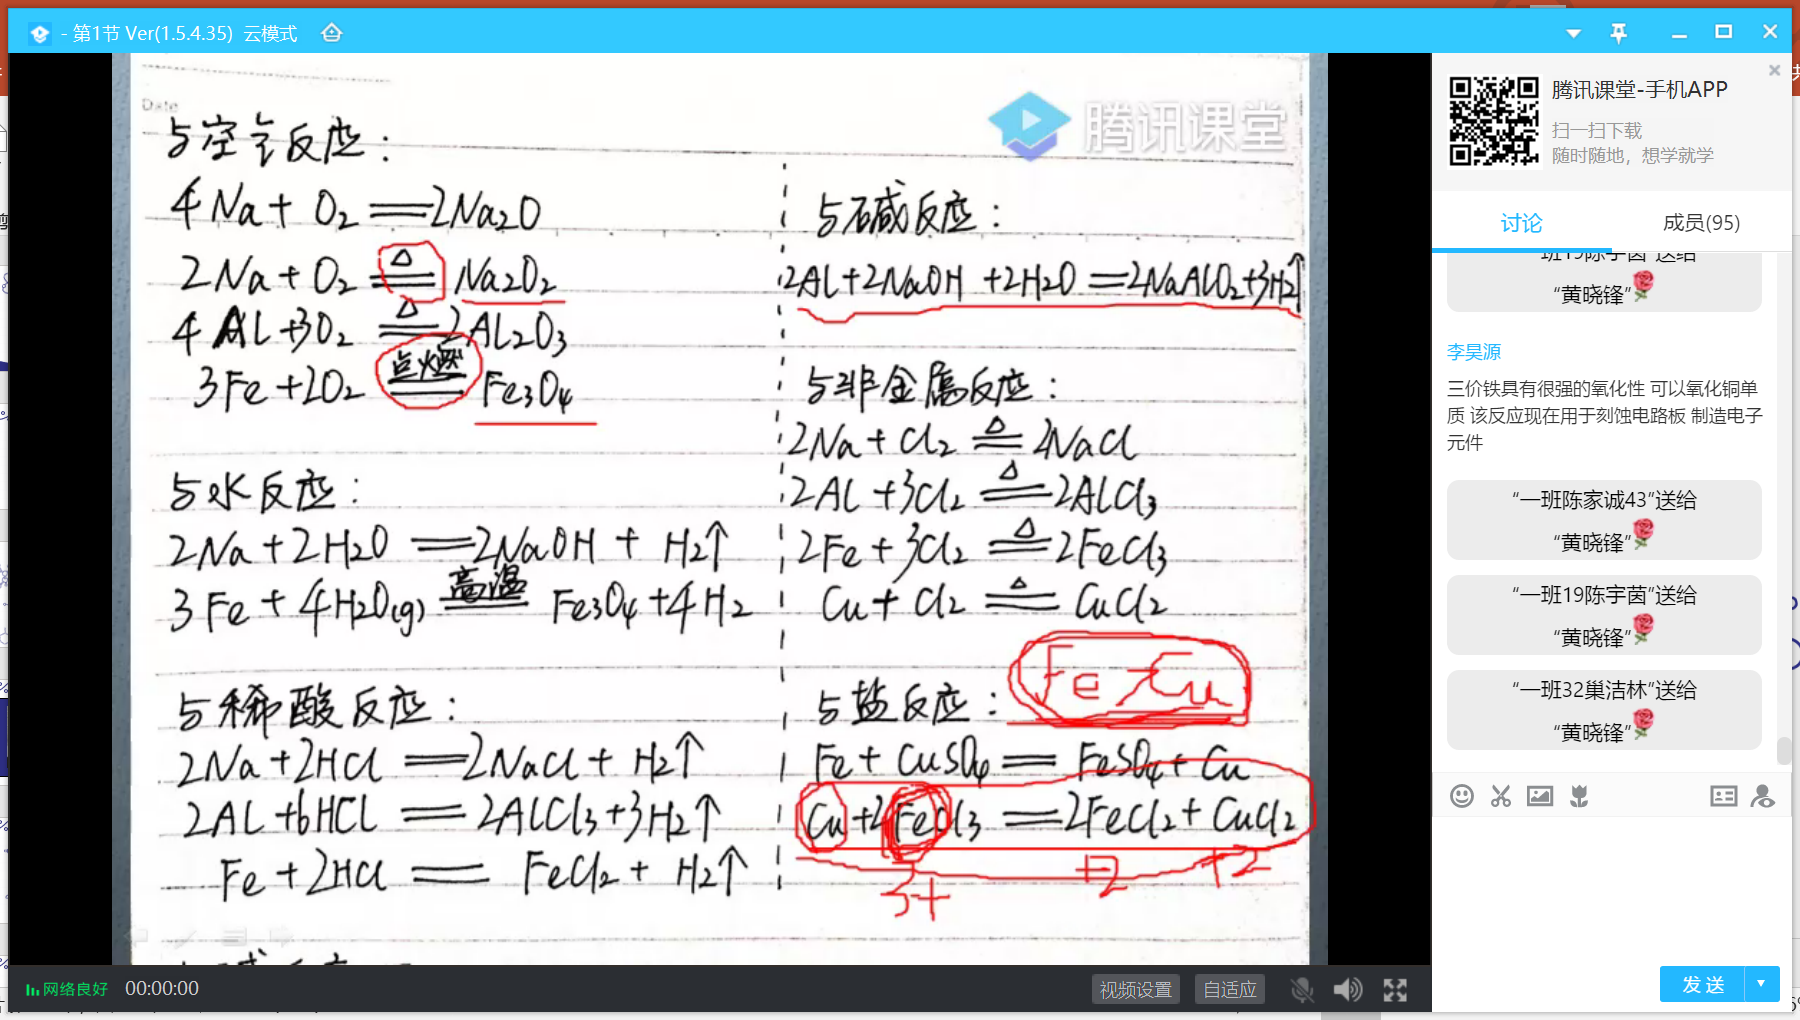 - 第1节 Ver(1.5.4.35) 云模式
Date
与空气反应：
4Na + O₂ ══ 2Na₂O
2Na + O₂ ══△ Na₂O₂
4Al + 3O₂ ══△ 2Al₂O₃
3Fe + 2O₂ ══点燃 Fe₃O₄
与水反应：
2Na + 2H₂O ══ 2NaOH + H₂↑
3Fe + 4H₂O(g) ══高温 Fe₃O₄ + 4H₂
与稀酸反应：
2Na + 2HCl ══ 2NaCl + H₂↑
2Al + 6HCl ══ 2AlCl₃ + 3H₂↑
Fe + 2HCl ══ FeCl₂ + H₂↑
腾讯课堂
与碱反应：
2Al + 2NaOH + 2H₂O ══ 2NaAlO₂ + 3H₂↑
与非金属反应：
2Na + Cl₂ ══△ 2NaCl
2Al + 3Cl₂ ══△ 2AlCl₃
2Fe + 3Cl₂ ══△ 2FeCl₃
Cu + Cl₂ ══△ CuCl₂
与盐反应：
Fe > Cu
Fe + CuSO₄ ══ FeSO₄ + Cu
Cu + 2FeCl₃ ══ 2FeCl₂ + CuCl₂
3+
+2
+2
网络良好
00:00:00
视频设置
自适应
腾讯课堂-手机APP
扫一扫下载
随时随地，想学就学
讨论
成员(95)
“班19陈宇茵”送给
“黄晓锋”
李昊源
三价铁具有很强的氧化性 可以氧化铜单
质 该反应现在用于刻蚀电路板 制造电子
元件
“一班陈家诚43”送给
“黄晓锋”
“一班19陈宇茵”送给
“黄晓锋”
“一班32巢洁林”送给
“黄晓锋”
发送